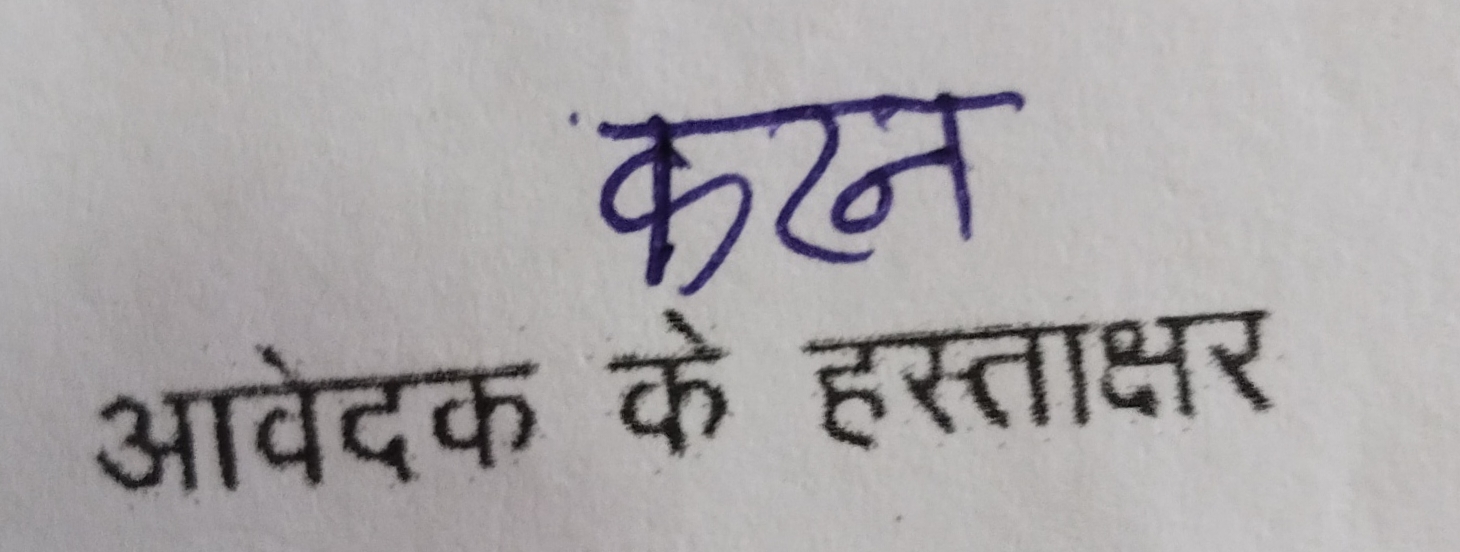 करन
आवेदक के हस्ताक्षर